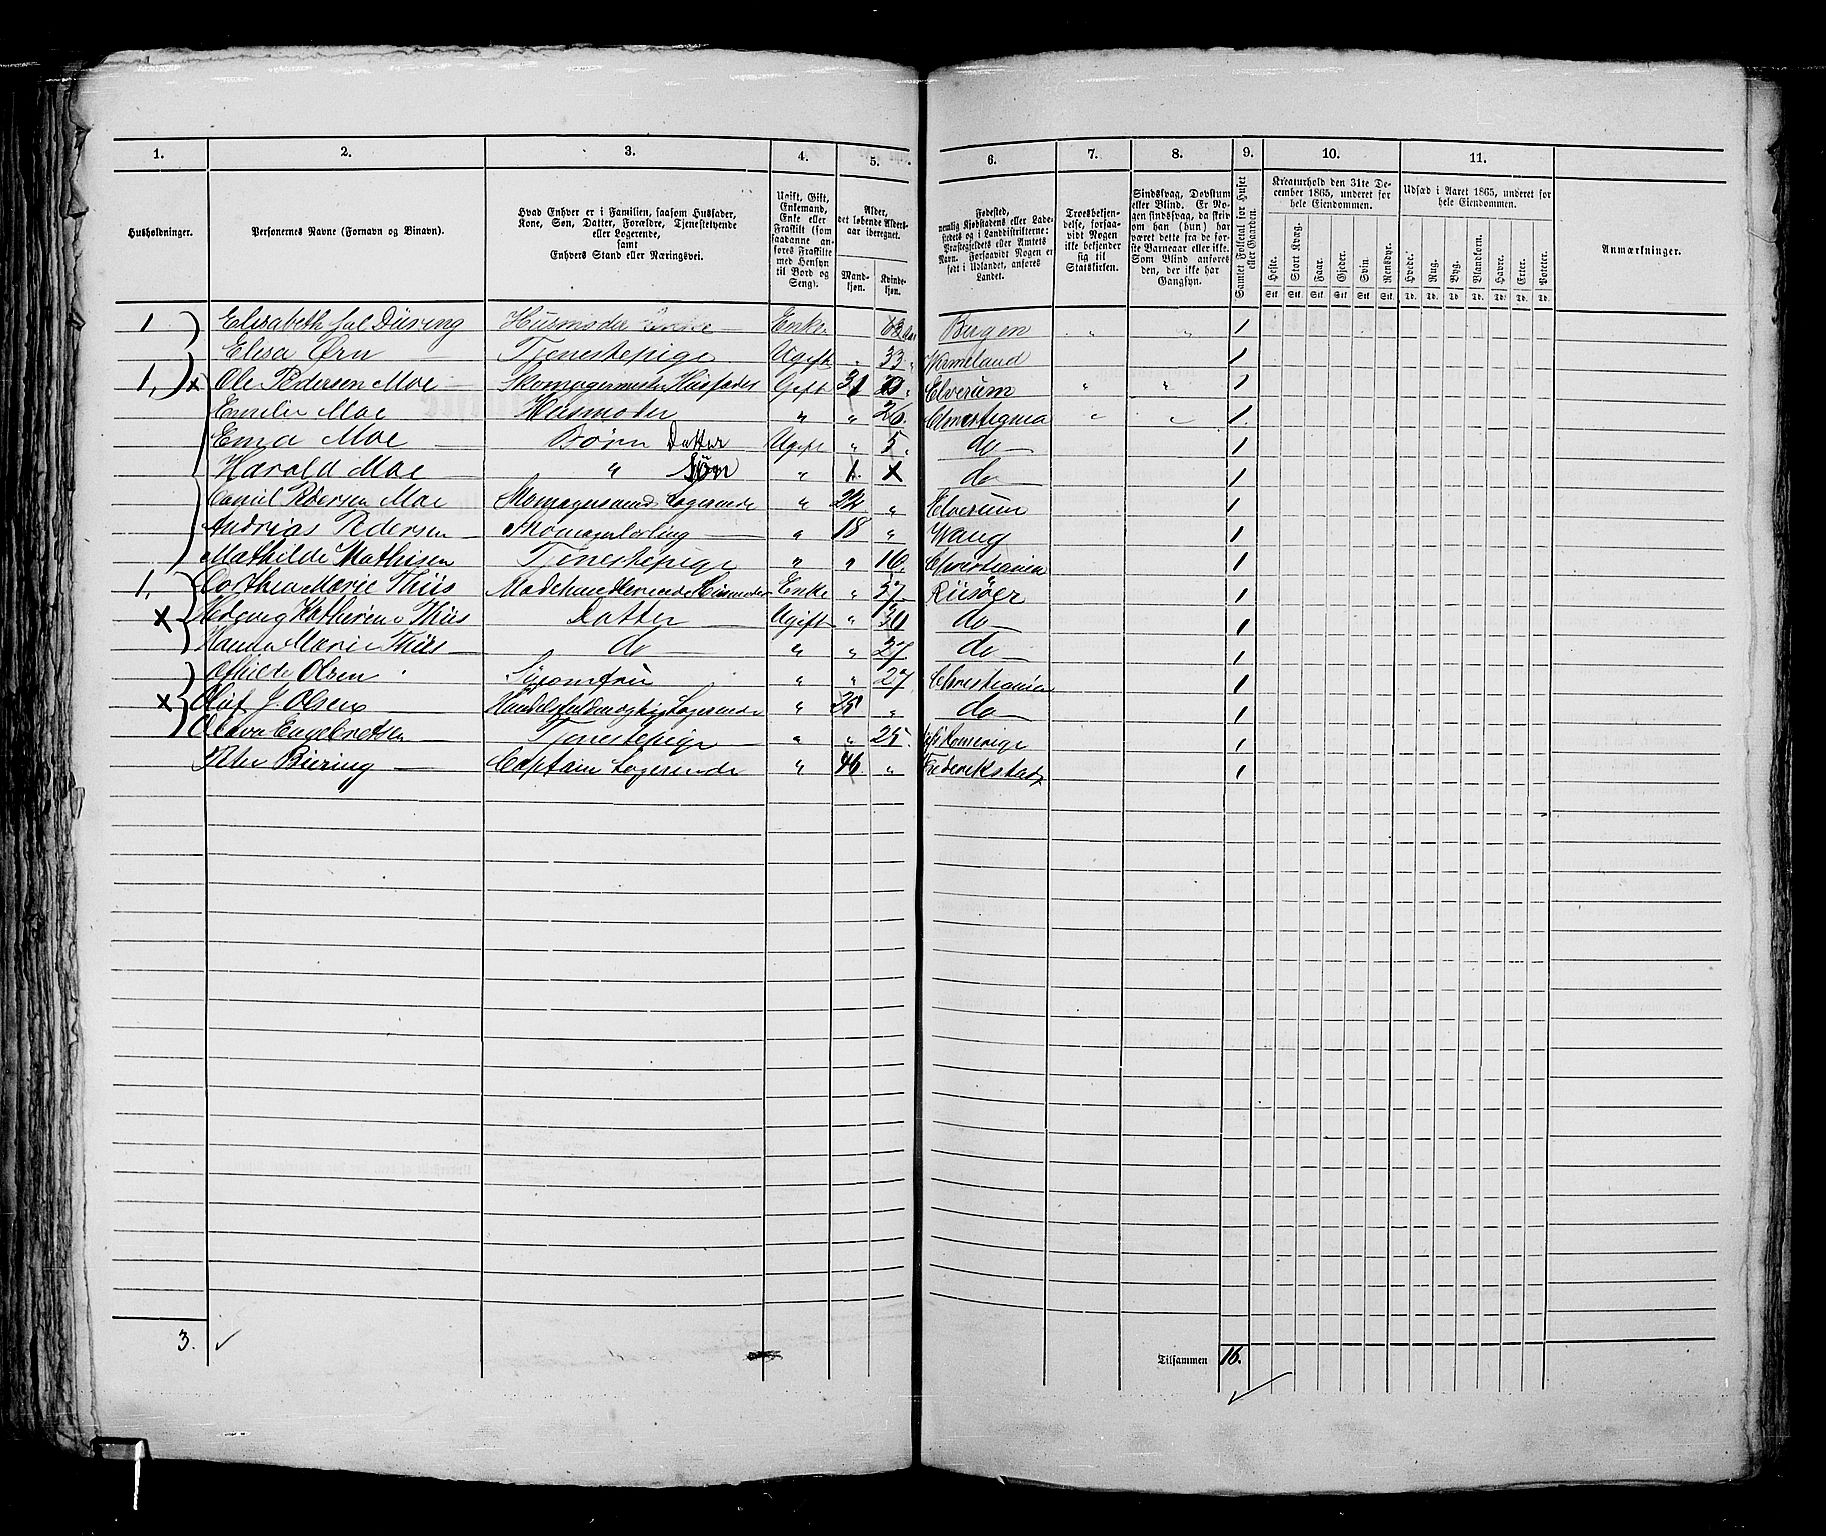 1. 2. 3. 4. 5. 6. 7. 8. 9. 10. 11.
Husholdninger.
Personernes Navne (Fornavn og Binavn).
Hvad Enhver er i Familien, saasom Husfader,
Kone, Søn, Datter, Forældre, Tjenestetyende
eller Logerende,
samt
Enhvers Stand eller Næringsvei.
Ugift, Gift,
Enkemand,
Enke eller
Fraskilt (som
saadanne an-
føres Fraskilte
med Hensyn
til Bord og
Seng).
Alder,
det løbende Alders-
aar iberegnet.
Mand-
kjøn.
Kvinde-
kjøn.
Fødested,
nemlig Kjøbstadens eller Lade-
stedets og i Landdistrikterne:
Præstegjeldets eller Amtets
Navn. Forsaavidt Nogen er
født i Udlandet, anføres
Landet.
Troesbekjen-
delse, forsaa-
vidt Nogen
ikke bekjender
sig til
Statskirken.
Sindssvag, Døvstum
eller Blind. Er No-
gen sindssvag, da skriv
om han (hun) har
været dette fra de før-
ste Barneaar eller ikke.
Som Blind anføres
den, der ikke har
Gangsyn.
Samlet Folketal for Huset
eller Gaarden.
Kreaturhold den 31te De-
cember 1865, underet for
hele Eiendommen.
Heste. Stort Kvæg. Faar. Gjeder. Svin. Rensdyr.
Stk. Stk. Stk. Stk. Stk. Stk.
Udsæd i Aaret 1865, underet for
hele Eiendommen.
Hvede. Rug. Byg. Blandkorn. Havre. Erter. Poteter.
Td. Td. Td. Td. Td. Td. Td.
Anmærkninger.
1 Elisabeth sal Düring Husmoder Enke Enke 63 Bergen " " 1
Elisa Ørn Tjenestepige Ugift " 33 1
1, x Ole Pedersen Moe Skomagermester Husfader Gift 31 Elverum " " 1
Emilie Moe Husmoder " " 26 Christiania " " 1
Ema Moe Børn Datter Ugift " 5 do 1
Harald Moe " Søn " 1 x do 1
Daniel Pedersen Moe Skomagersvend Logerende " 22 " Elverum 1
Andrias Pedersen Skomagerlærling " 18 " Vang 1
Mathilde Mathisen Tjenestepige " " 16 Christiania 1
1, Dorthea Marie Thiis Madehandlerinde Husmoder Enke " 57 Riisøer 1
x Hedevig Katherine Thiis Datter Ugift " 30 do 1
Hanna Marie Thiis do " " 27 do 1
Olsen Syjomfru " " 27 Christiania 1
x Oluf J. Olsen Handelsfuldmægtig Logerende " 25 " do 1
Engebretsen Tjenestepige " " 25. 1
Peter Biering Captain Logerende " 46 " Frederikstad 1
3. ✓
Tilsammen 16.